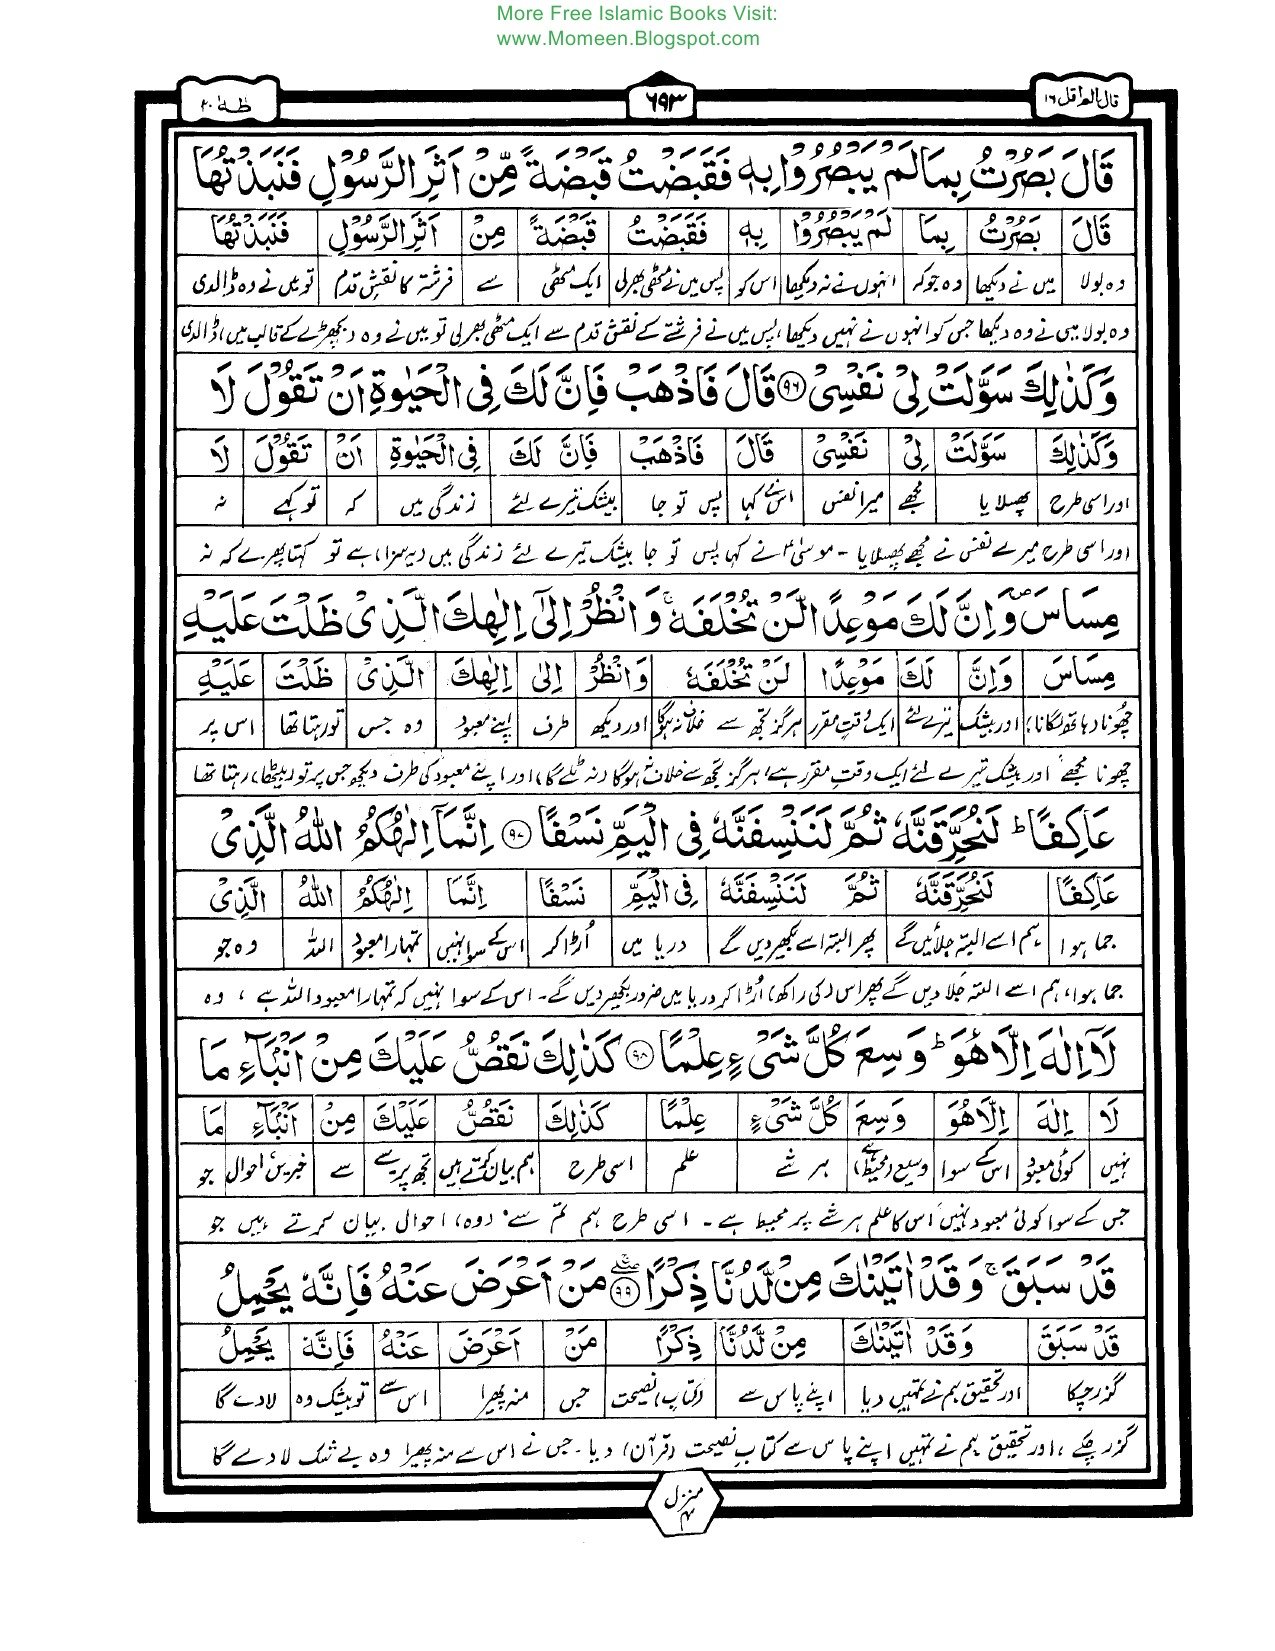 More Free Islamic Books Visit:
www.Momeen.Blogspot.com
قال الم اقل ١٦
٦٩٣
طٰهٰ ٢٠
قَالَ بَصُرْتُ بِمَا لَمْ يَبْصُرُوْا بِهٖ فَقَبَضْتُ قَبْضَةً مِّنْ اَثَرِ الرَّسُوْلِ فَنَبَذْتُهَا
قَالَ بَصُرْتُ بِمَا لَمْ يَبْصُرُوْا بِهٖ فَقَبَضْتُ قَبْضَةً مِنْ اَثَرِ الرَّسُوْلِ فَنَبَذْتُهَا
وہ بولا میں نے دیکھا وہ جو کہ انہوں نے نہ دیکھا اس کو پس میں نے مٹھی بھر لی ایک مٹھی سے فرشتہ کا نقشِ قدم تو میں نے وہ ڈالدی
وہ بولا میں نے وہ دیکھا جس کو انہوں نے نہیں دیکھا، پس میں نے فرشتے کے نقش قدم سے ایک مٹھی بھر لی تو میں نے وہ (بچھڑے کے قالب میں) ڈالدی
وَكَذٰلِكَ سَوَّلَتْ لِيْ نَفْسِيْ ٩٦ قَالَ فَاذْهَبْ فَاِنَّ لَكَ فِى الْحَيٰوةِ اَنْ تَقُوْلَ لَا
وَكَذٰلِكَ سَوَّلَتْ لِيْ نَفْسِيْ قَالَ فَاذْهَبْ فَاِنَّ لَكَ فِى الْحَيٰوةِ اَنْ تَقُوْلَ لَا
اور اسی طرح پھسلایا مجھے میرا نفس اس نے کہا پس تو جا بیشک تیرے لئے زندگی میں کہ تو کہے نہ
اور اسی طرح میرے نفس نے مجھے پھسلایا - موسیٰؑ نے کہا پس تو جا بیشک تیرے لئے زندگی میں (یہ سزا) ہے تو کہتا پھرے کہ نہ
مِسَاسَ وَاِنَّ لَكَ مَوْعِدًا لَّنْ تُخْلَفَهٗ ۚ وَانْظُرْ اِلٰٓى اِلٰهِكَ الَّذِيْ ظَلْتَ عَلَيْهِ
مِسَاسَ وَاِنَّ لَكَ مَوْعِدًا لَنْ تُخْلَفَهٗ وَانْظُرْ اِلٰى اِلٰهِكَ الَّذِيْ ظَلْتَ عَلَيْهِ
چھونا (ہاتھ لگانا) اور بیشک تیرے لئے ایک وقت مقرر ہرگز تجھ سے خلاف نہ ہوگا اور دیکھ طرف اپنے معبود وہ جس تو رہتا تھا اس پر
چھونا مجھے اور بیشک تیرے لئے ایک وقت مقرر ہے، ہرگز تجھ سے خلاف نہ ہوگا (نہ ٹلے گا) اور اپنے معبود کی طرف دیکھ جس پر تو (بیٹھا) رہتا تھا
عَاكِفًا ؕ لَنُحَرِّقَنَّهٗ ثُمَّ لَنَنْسِفَنَّهٗ فِى الْيَمِّ نَسْفًا ٩٧ اِنَّمَآ اِلٰهُكُمُ اللّٰهُ الَّذِيْ
عَاكِفًا لَنُحَرِّقَنَّهٗ ثُمَّ لَنَنْسِفَنَّهٗ فِى الْيَمِّ نَسْفًا اِنَّمَا اِلٰهُكُمُ اللّٰهُ الَّذِيْ
جما ہوا ہم اسے البتہ جلائیں گے پھر البتہ اسے بکھیر دیں گے دریا میں اڑا کر اس کے سوا نہیں تمہارا معبود اللہ وہ جو
جما ہوا، ہم اسے البتہ جلا دیں گے پھر اس (کی راکھ) اڑا کر دریا میں ضرور بکھیر دیں گے۔ اس کے سوا نہیں کہ تمہارا معبود اللہ ہے ، وہ
لَآ اِلٰهَ اِلَّا هُوَ ؕ وَسِعَ كُلَّ شَيْءٍ عِلْمًا ٩٨ كَذٰلِكَ نَقُصُّ عَلَيْكَ مِنْ اَنْۢبَآءِ مَا
لَا اِلٰهَ اِلَّا هُوَ وَسِعَ كُلَّ شَيْءٍ عِلْمًا كَذٰلِكَ نَقُصُّ عَلَيْكَ مِنْ اَنْۢبَآءِ مَا
نہیں کوئی معبود اس کے سوا وسیع (محیط) ہے ہر شے علم اسی طرح ہم بیان کرتے ہیں تجھ پر سے سے خبریں، احوال جو
جس کے سوا کوئی معبود نہیں اس کا علم ہر شے پر محیط ہے - اسی طرح ہم تم سے (وہ) احوال بیان کرتے ہیں جو
قَدْ سَبَقَ ۚ وَقَدْ اٰتَيْنٰكَ مِنْ لَّدُنَّا ذِكْرًا ٩٩ مَنْ اَعْرَضَ عَنْهُ فَاِنَّهٗ يَحْمِلُ
قَدْ سَبَقَ وَقَدْ اٰتَيْنٰكَ مِنْ لَّدُنَّا ذِكْرًا مَنْ اَعْرَضَ عَنْهُ فَاِنَّهٗ يَحْمِلُ
گزر چکا اور تحقیق ہم نے تمہیں دیا اپنے پاس سے (کتاب) نصیحت جس منہ پھیرا اس سے تو بیشک وہ لادے گا
گزر چکے ، اور تحقیق ہم نے تمہیں اپنے پاس سے کتابِ نصیحت (قرآن) دیا - جس نے اس سے منہ پھیرا وہ بے شک لادے گا
منزل ٤